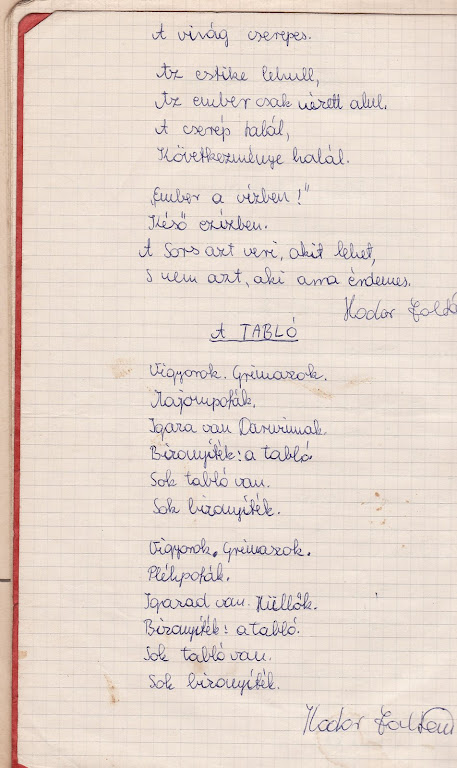 A virág cserepes.
Az estike lehull,
Az ember csak nézett alul.
A cserép halál,
Következménye halál.
„Ember a vízben!”
Késő ezízben.
A Sors azt veri, akit lehet,
S nem azt, aki arra érdemes.
Hodor Zoltá
A TABLÓ
Vigyorok. Grimaszok.
Majompofák.
Igaza van Darwinnak.
Bizonyíték: a tabló
Sok tabló van.
Sok bizonyíték.
Vigyorok. Grimaszok.
Pléhpofák.
Igazad van. Hüllők.
Bizonyíték: a tabló.
Sok tabló van.
Sok bizonyíték.
Hodor Zoltán